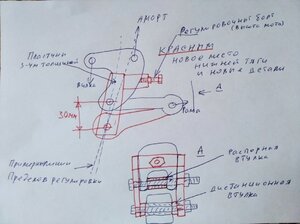 АМОРТ
Регулировочный болт
(высота мота)
Пластины
3-4мм толщина
КРАСНЫМ
новое место
нижней тяги
и новые детали
вилка
А
Рама
30мм
Примерно
Пределов регулировки
А
распорная
втулка
дистанционная
втулка